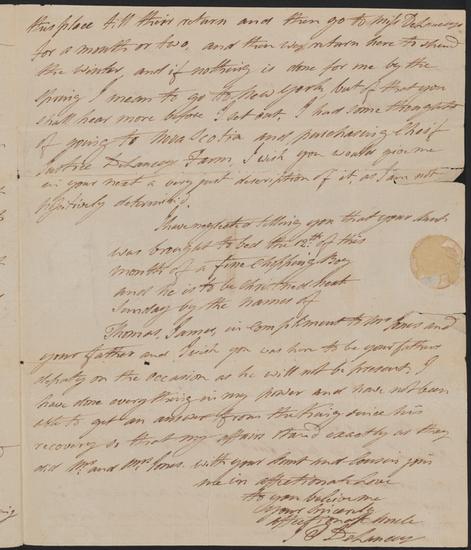 this place till their return and then go to Miss DeLanceys
for a month or two, and then we return here to spend
the winter, and if nothing is done for me by the
Spring I mean to go to New York but of that you
shall hear more before I set out. I had some thoughts
of going to Nova Scotia and purchasing Chief
Justice DeLanceys Farm, I wish you would give me
in your next a very just description of it as I am not
positively determin'd.
I have neglected telling you that your Aunt
was brought to bed the 12th of this
month of a fine Chopping Boy
and he is to be christned next
Sunday by the names of
Thomas James, in compliment to Mr Jones and
your father and I wish you was here to be your fathers
deputy on the occasion as he will not be present. I
have done everything in my power and have not been
able to get an answer from the
recovery so that my affairs stand exactly as they
did Mr. and Mrs. Jones. with your Aunt and Cousin join
me in affectionate Love
to you believe me
your Sincerely
affectionate Uncle
DeLancey